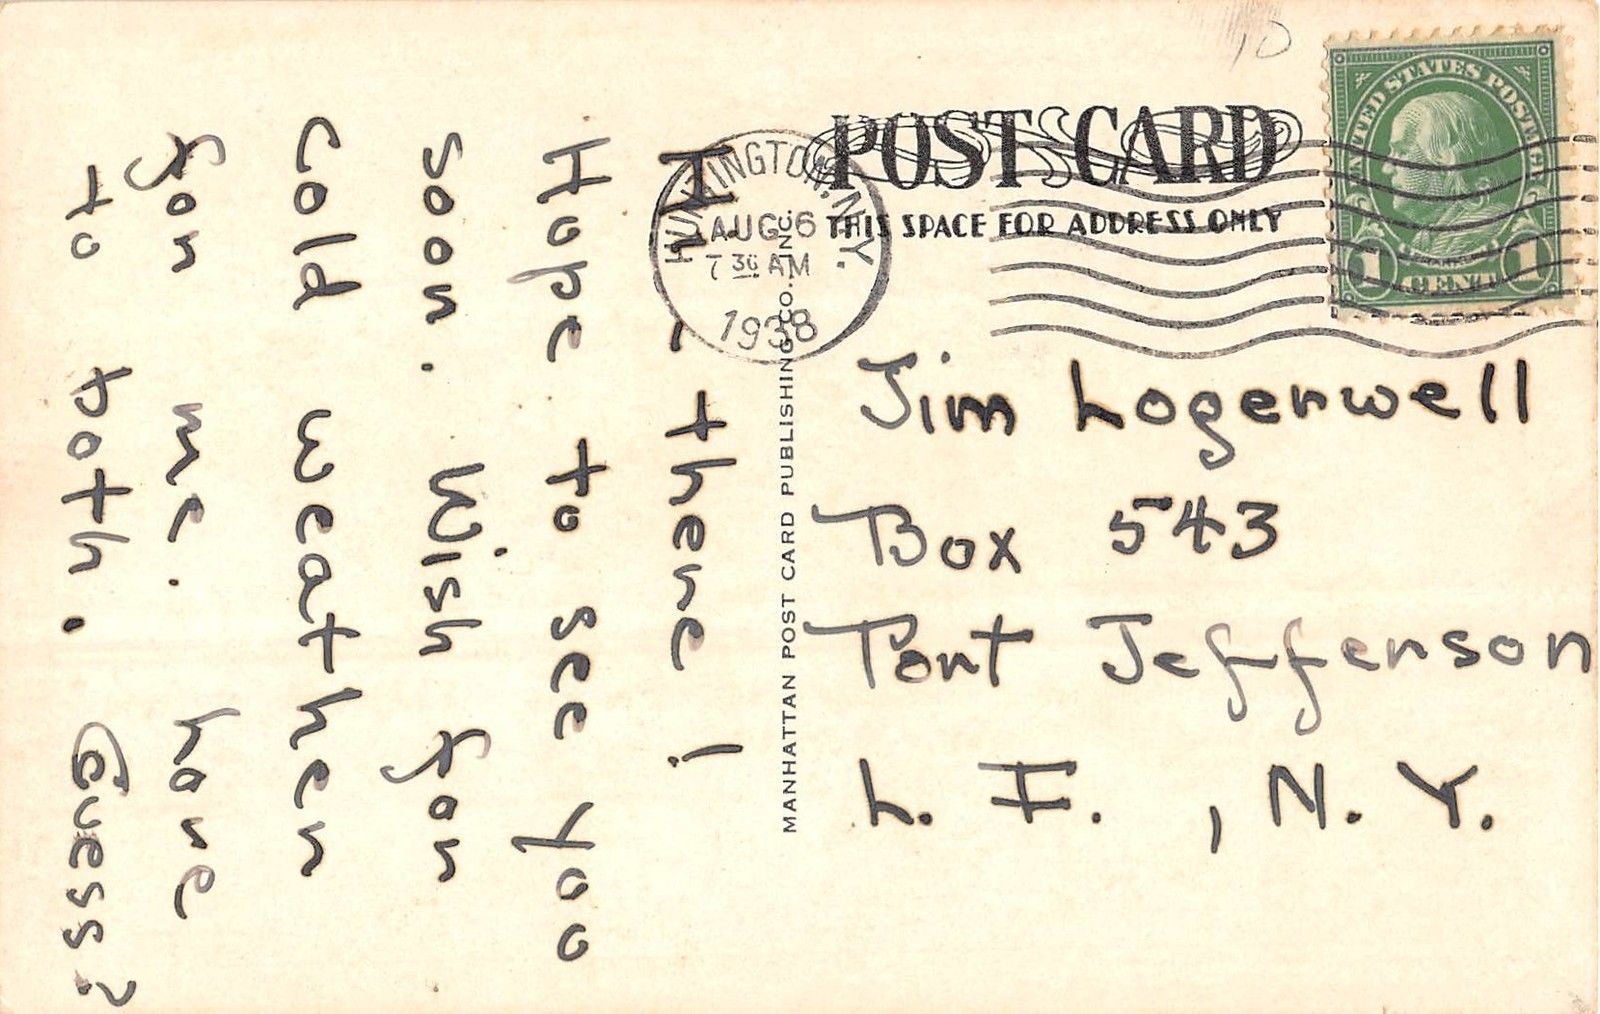 10
POST CARD
THIS SPACE FOR ADDRESS ONLY
UNITED STATES POSTAGE
FRANKLIN
1 CENT 1
HUNTINGTON, N.Y.
AUG 6
7 30 AM
1938
Hi - there!
Hope to see yoo
soon. Wish for
cold weather
for me. hore
to toth. Guess?
MANHATTAN POST CARD PUBLISHING CO. INC.
Jim Logerwell
Box 543
Port Jefferson
L. I. , N. Y.